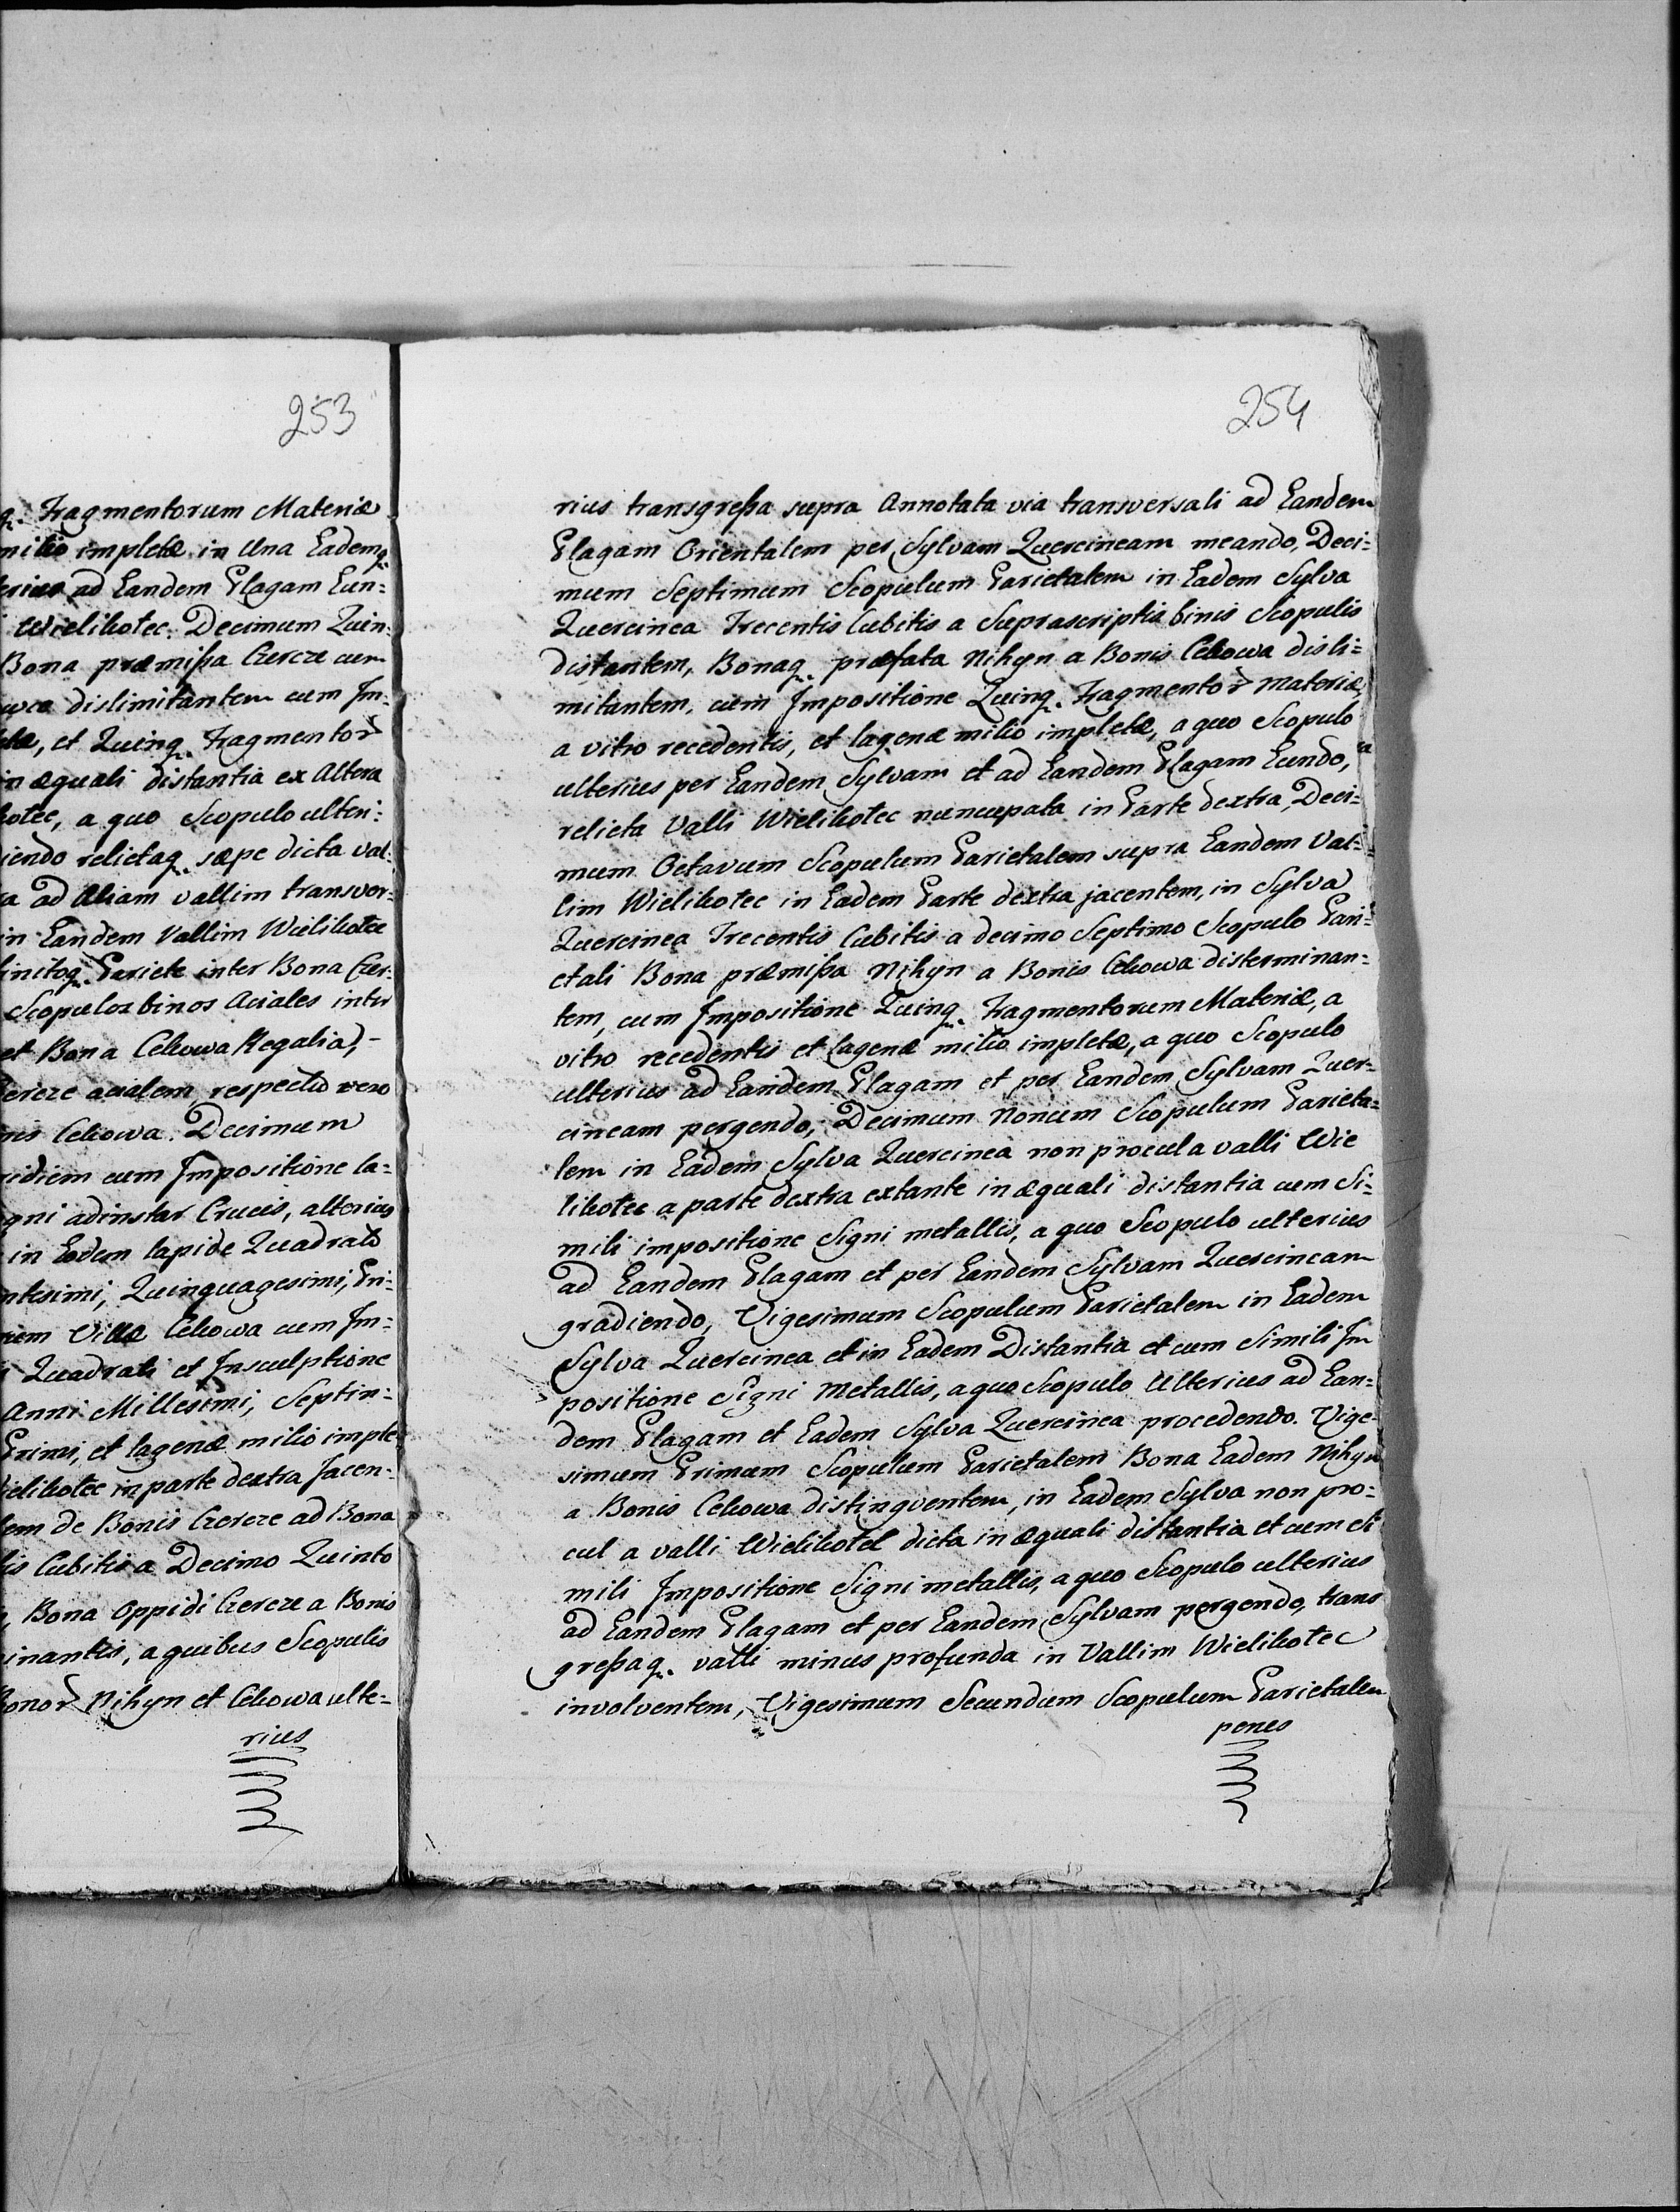 253
q. Fragmentorum Materiæ
milio impletæ in Una Eademq.
terius ad Eandem Plagam Eun=
Wielikotec. Decimum Quin=
Bona præmissa Czercze cum
dislimitantem cum Im=
et Quinq. Fragmentor
in æquali distantia ex Altera
kotec, a quo Scopulo ulteri=
iendo relictaq. sæpe dicta val=
ad Aliam vallim transver=
in Eandem Vallim Wielikotec
finitoq. Pariete inter Bona Czer=
Scopulos binos Aciales inter
et Bona Cekowa Regalia, -
Czercze acialem respectu vero
Cekowa. Decimum
ridiem cum Impositione la=
gni adinstar Crucis, alterius
in Eodem lapide Quadrato
ntesimi, Quinquagesimi, Pri=
Villæ Cekowa cum Im=
Quadrati et Insculptione
Anni Millesimi, Septin=
Primi, et lagenæ milio imple=
ielikotec in parte dextra Jacen=
de Bonis Czercze ad Bona
tis Cubitis a Decimo Quinto
Bona Oppidi Czercze a Bonis
inantis, a quibus Scopulis
Bonor Nihyn et Cekowa ulte=
rius
254
rius transgressa supra Annotata via transversali ad Eandem
Plagam Orientalem per Sylvam Quercineam meando, Deci=
mum Septimum Scopulum Parietalem in Eadem Sylva
Quercinea Trecentis Cubitis a Suprascriptis binis Scopulis
distantem, Bonaq. præfata Nihyn a Bonis Cekowa disli=
mitantem, cum Impositione Quinq. Fragmentor Materiæ
a vitro recedentis, et lagenæ milio impletæ, a quo Scopulo
ulterius per Eandem Sylvam et ad Eandem Plagam Eundo,
relicta Valli Wielikotec nuncupata in Parte dextra, Deci=
mum Octavum Scopulum Parietalem supra Eandem Val=
lim Wielikotec in Eadem Parte dextra jacentem, in Sylva
Quercinea Trecentis Cubitis a decimo Septimo Scopulo Pari=
etali Bona præmissa Nihyn a Bonis Cekowa disterminan=
tem, cum Impositione Quinq. Fragmentorum Materiæ, a
vitro recedentis et lagenæ milio impletæ, a quo Scopulo
ulterius ad Eandem Plagam et per Eandem Sylvam Quer=
cineam pergendo, Decimum Nonum Scopulum Parieta=
lem in Eadem Sylva Quercinea non procul a valli Wie
likotec a parte dextra extante in æquali distantia cum Si=
mili impositione Signi metallis, a quo Scopulo ulterius
ad Eandem Plagam et per Eandem Sylvam Quercineam
gradiendo, Vigesimum Scopulum Parietalem in Eadem
Sylva Quercinea et in Eadem Distantia et cum Simili Im
positione Signi Metallis, a quo Scopulo Ulterius ad Ean=
dem Plagam et Eadem Sylva Quercinea procedendo. Vige=
simum Primum Scopulum Parietalem Bona Eadem Nihyn
a Bonis Cekowa distingventem, in Eadem Sylva non pro=
cul a valli Wielikotel dicta in æquali distantia et cum Si
mili Impositione Signi metallis, a quo Scopulo ulterius
ad Eandem Plagam et per Eandem Sylvam pergendo, trans
gressaq. valli minus profunda in Vallim Wielikotec
involventem, Vigesimum Secundum Scopulum Parietalem
penes